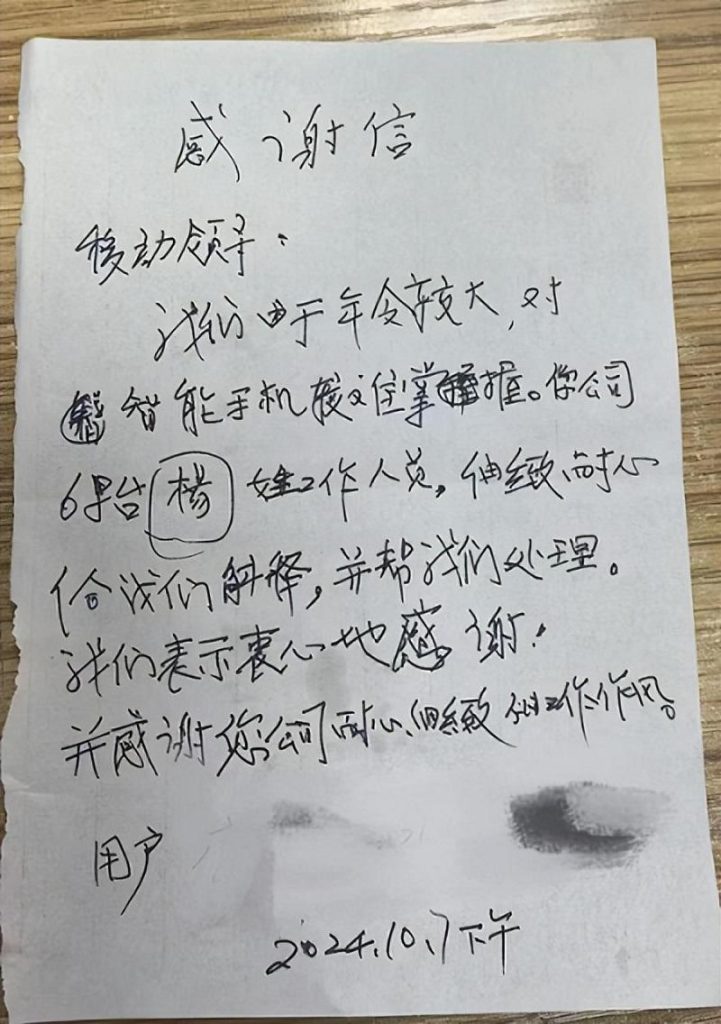 感谢信
移动领导：
我们由于年令较大，对
智能手机较难掌握。您公司
6号台楊姓工作人员，细致耐心
给我们解释，并帮我们处理。
我们表示衷心地感谢！
并感谢您公司耐心、细緻的工作作风。
用户
2024.10.7下午